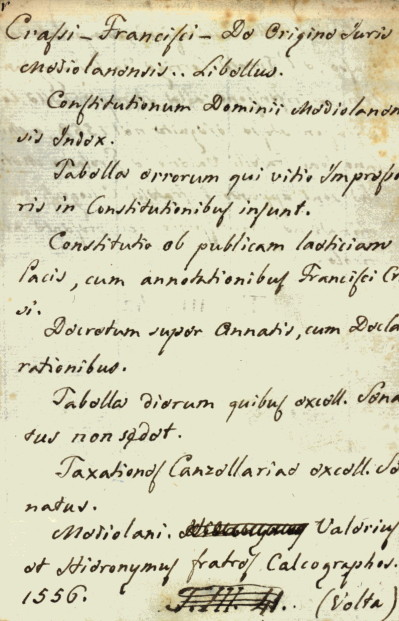 Crassi - Francisci - De Origine Juris
Mediolanensis.. Libellus.
Constitutionum Dominii Mediolanen
sis Index.
Tabella errorum qui vitio Impresso
ris in Constitutionibus insunt.
Constitutio ob publicam laeticiam
Pacis, cum annotationibus Francisci Cr
si.
Decretum super Annatis, cum Decla
rationibus.
Tabella dierum quibus excell. Sena
tus non sedet.
Taxationes Canzellariae excell. Se
natus.
Mediolani. Valerius
et Hieronymus fratres Calcographos.
1556. (Volta)